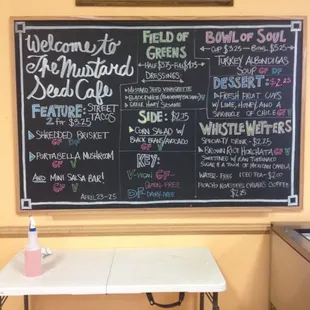 Welcome to
The Mustard
Seed Cafe
Feature: Street
Tacos
2 for $3.25
Shredded Brisket
GF DF
Portabella Mushroom
GF V
And Mini Salsa Bar!
April 23-25
Field of
Greens
Half $3.75 Full
Dressings
Mustard Seed Vinaigrette
Side: $2.25
Corn Salad w/
Black Beans/Avocado
GF V
Key:
V=Vegan GF=
Gluten-Free
DF=Dairy Free
Bowl of Soul
Cup $3.25 Bowl $5.25
Turkey Albondigas
Soup GF DF
Dessert: $2.25
Fresh Fruit Cups
w/ Lime, Honey, and a
Sprinkle of Chile GF
Whistle Wetters
Specialty Drink - $2.25
Brown Rice Horchata GF V
Sweetened w/ Raw Turbinado
Sugar & a Touch of Mexican Canela
Water - Free Iced Tea - $2.00
Coffee
$2.25